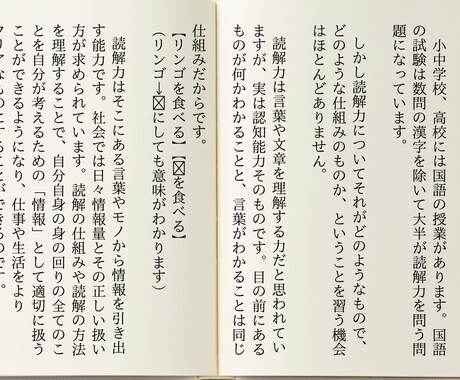 小中学校、高校には国語の授業があります。国語
の試験は数問の漢字を除いて大半が読解力を問う問
題になっています。
しかし読解力についてそれがどのようなもので、
どのような仕組みのものか、ということを習う機会
はほとんどありません。
読解力は言葉や文章を理解する力だと思われてい
ますが、実は認知能力そのものです。目の前にある
ものが何かわかることと、言葉がわかることは同じ
仕組みだからです。
【リンゴを食べる】【☒を食べる】
（リンゴ→☒にしても意味がわかります）
読解力はそこにある言葉やモノから情報を引き出
す能力です。社会では日々情報量とその正しい扱い
方が求められています。読解の仕組みや読解の方法
を理解することで、自分自身の身の回りの全てのこ
とを自分が考えるための「情報」として適切に扱う
ことができるようになり、仕事や生活をより
クリアなものにすることができるのです。